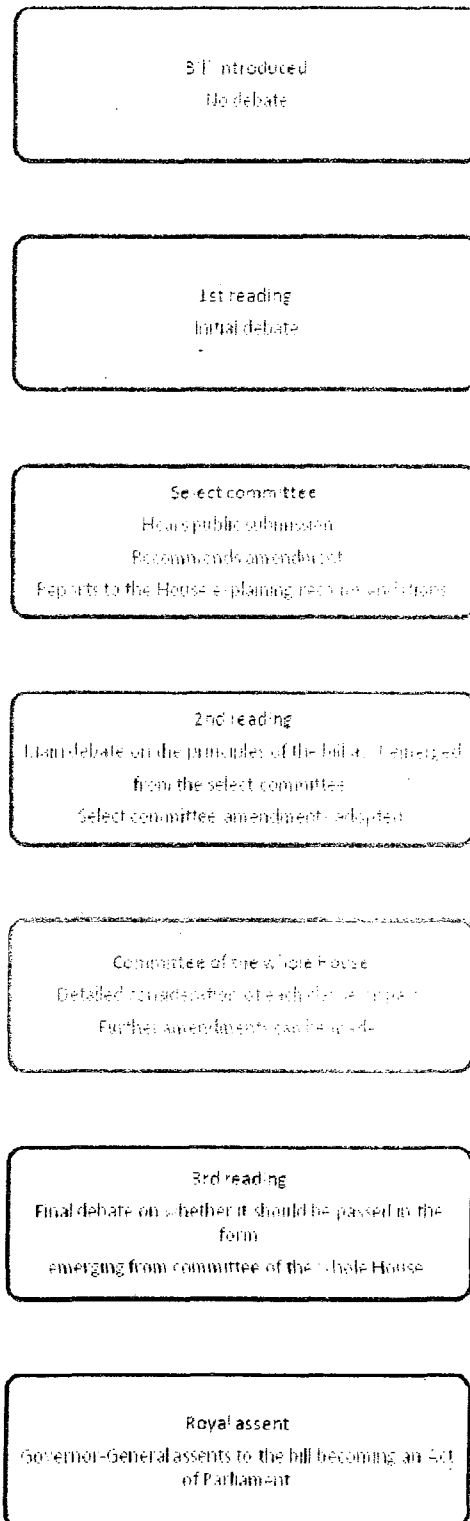 Bill introduced
No debate
1st reading
Initial debate
Select committee
Hears public submission
Recommends amendment
Reports to the House explaining recommendations
2nd reading
Main debate on the principles of the bill as it emerged
from the select committee
Select committee amendments adopted
Committee of the whole House
Detailed consideration of each clause or part
Further amendments can be made
3rd reading
Final debate on whether it should be passed in the
form
emerging from committee of the whole House
Royal assent
Governor-General assents to the bill becoming an Act
of Parliament